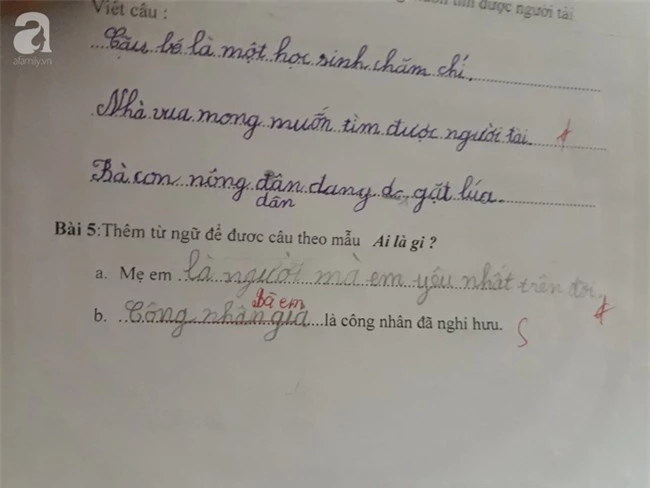 a
afamily.vn
tìm được người tài
Viết câu :
Cậu bé là một học sinh chăm chỉ.
Nhà vua mong muốn tìm được người tài.
Bà con nông dân đang gặt lúa.
dân
Bài 5:Thêm từ ngữ để đươc câu theo mẫu Ai là gì ?
a. Mẹ em là người mà em yêu nhất trên đời
Bà em
b. Công nhân già là công nhân đã nghi hưu.